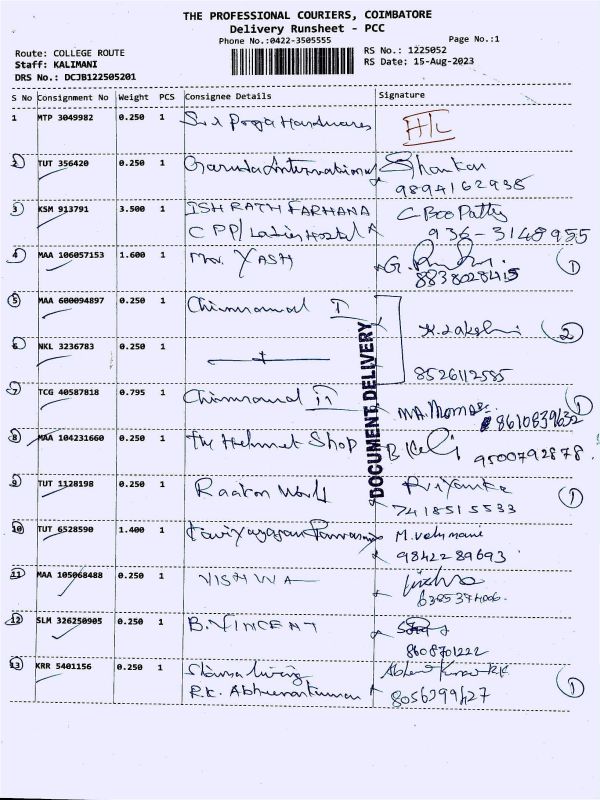 THE PROFESSIONAL COURIERS, COIMBATORE
Delivery Runsheet - PCC
Phone No.:0422-3505555
Page No.:1
Route: COLLEGE ROUTE
RS No.: 1225052
Staff: KALIMANI
RS Date: 15-Aug-2023
DRS No.: DCJB122505201
S No Consignment No Weight PCS Consignee Details Signature
1 MTP 3049982 0.250 1 Sri Pooja Hardwares
2 TUT 356420 0.250 1 Garuda International Shankar
9894162938
3 KSM 913791 3.500 1 ISHRATH FARHANA C Boo Patty
C PP/ Ladies Hostel 936-3148955
4 MAA 106057153 1.600 1 Mr. YASH G.
8838028415 1
5 MAA 600094897 0.250 1 I
6 NKL 3236783 0.250 1 K. Lakshmi 2
8526112585
7 TCG 40587818 0.795 1 II MA. Thomas 1
8610839632
8 MAA 104231660 0.250 1 The Helmet Shop
9500792878
DOCUMENT DELIVERY
9 TUT 1128198 0.250 1 Raaton World Priyanka
7418515533 1
10 TUT 6528590 1.400 1 M. Velumani
9842289693
11 MAA 105068488 0.250 1 VISHWA
6385374006
12 SLM 326250905 0.250 1 B. VINCENT
8608701222
13 KRR 5401156 0.250 1
R.K. Abhinavkumar 8056299427 1